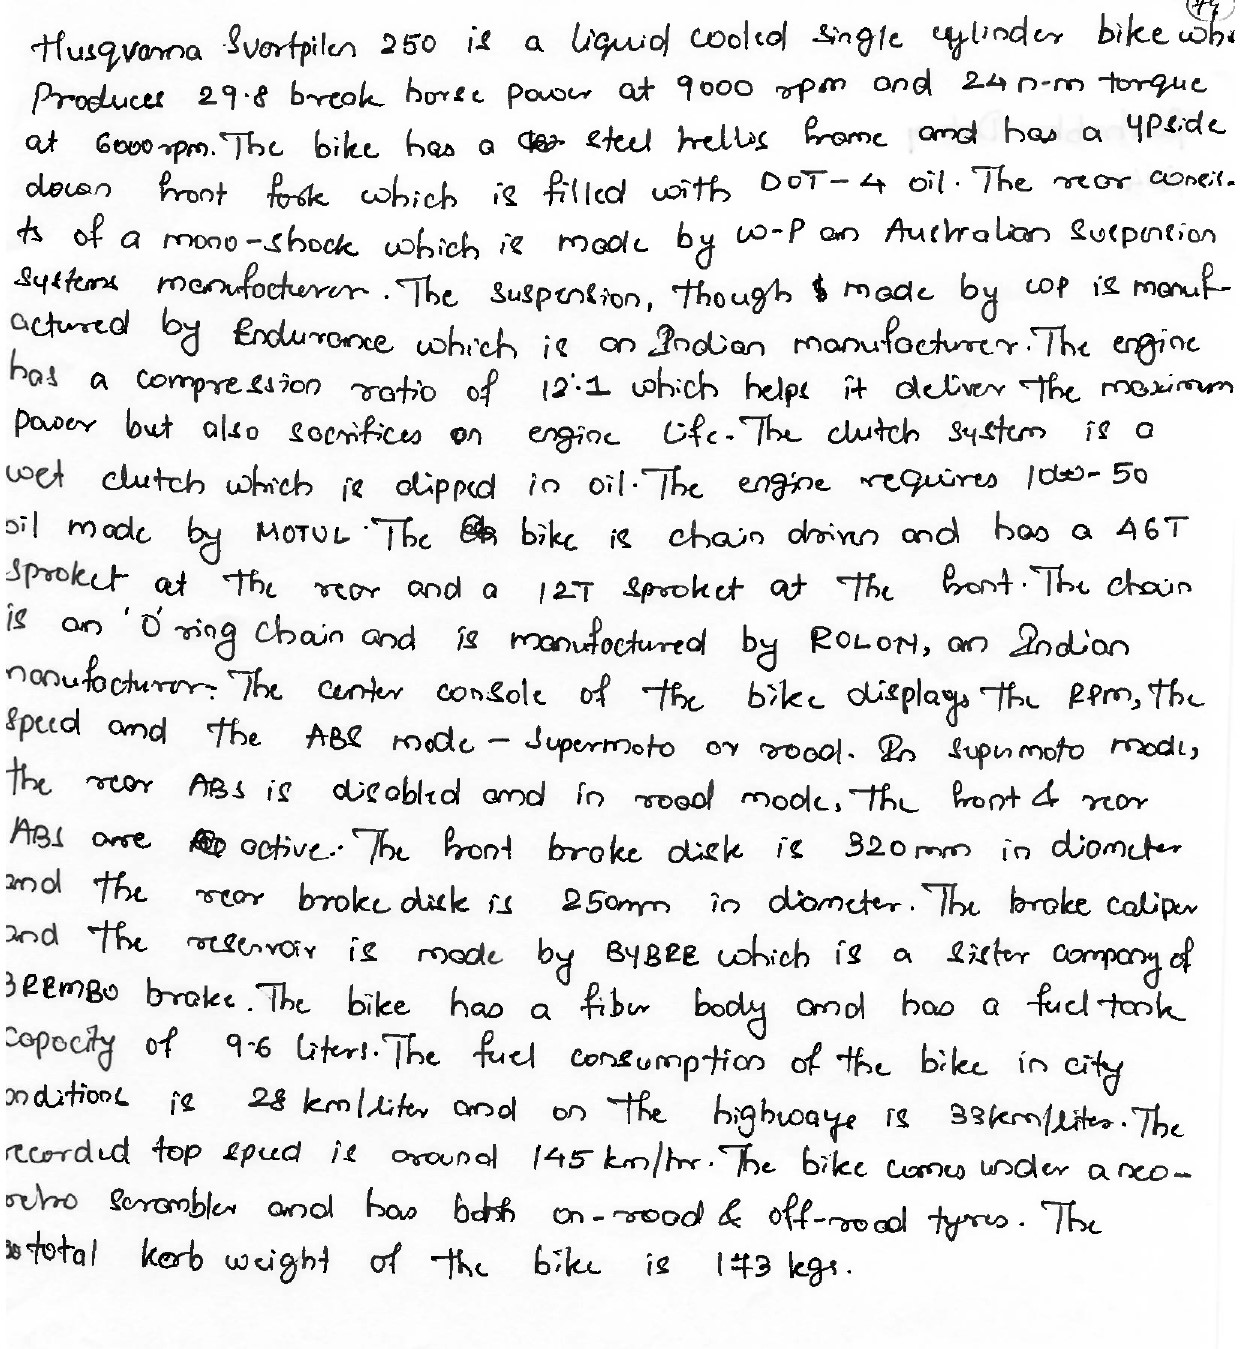 74
Husqvarna Svartpilen 250 is a liquid cooled single cylinder bike whi
Produces 29.8 break horse power at 9000 rpm and 24 n-m torque
at 6000 rpm. The bike has a steel trellis frame and has a upside
down front fork which is filled with DOT-4 oil. The rear consis-
ts of a mono-shock which is made by W-P an Australian Suspension
Systems manufacturer. The suspension, though made by WP is manuf-
actured by Endurance which is an Indian manufacturer. The engine
has a compression ratio of 12:1 which helps it deliver the maximum
power but also sacrifices on engine life. The clutch system is a
wet clutch which is dipped in oil. The engine requires 10w-50
oil made by MOTUL. The bike is chain driven and has a 46T
sproket at the rear and a 12T sproket at the front. The chain
is an 'O' ring chain and is manufactured by ROLON, an Indian
manufacturer. The center console of the bike displays the RPM, the
speed and the ABS mode - Supermoto or road. In Supermoto mode,
the rear ABS is disabled and in road mode, the front & rear
ABS are active. The front brake disk is 320mm in diameter
and the rear brake disk is 250mm in diameter. The brake caliper
and the reservoir is made by BYBRE which is a sister company of
BREMBO brake. The bike has a fiber body and has a fuel tank
capacity of 9.6 liters. The fuel consumption of the bike in city
onditions is 28 km/liter and on the highways is 33km/liter. The
recorded top speed is around 145 km/hr. The bike comes under a neo-
retro scrambler and has both on-road & off-road tyres. The
total kerb weight of the bike is 173 kgs.